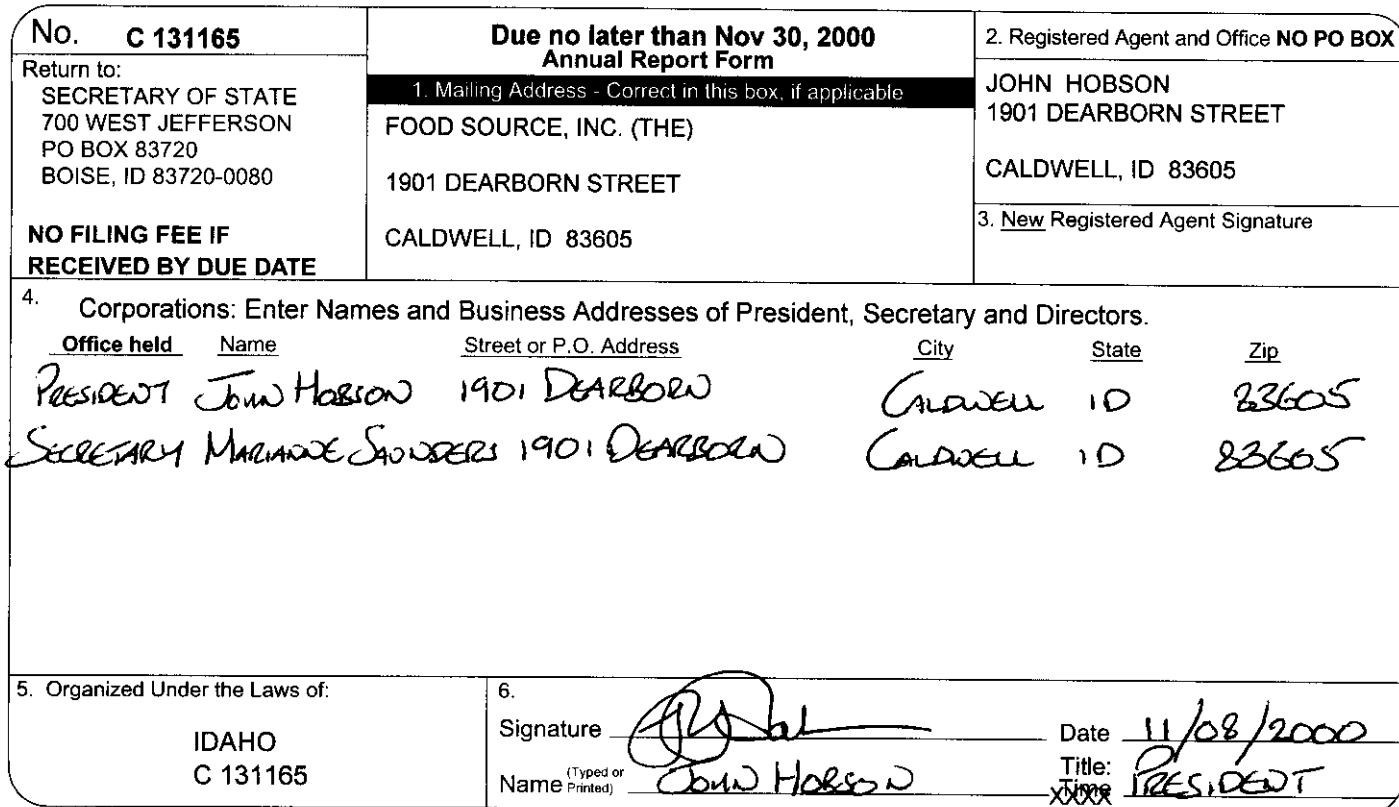 No. C 131165
Return to:
SECRETARY OF STATE
700 WEST JEFFERSON
PO BOX 83720
BOISE, ID 83720-0080
NO FILING FEE IF
RECEIVED BY DUE DATE
Due no later than Nov 30, 2000
Annual Report Form
1. Mailing Address - Correct in this box, if applicable
FOOD SOURCE, INC. (THE)
1901 DEARBORN STREET
CALDWELL, ID 83605
2. Registered Agent and Office NO PO BOX
JOHN HOBSON
1901 DEARBORN STREET
CALDWELL, ID 83605
3. New Registered Agent Signature
4. Corporations: Enter Names and Business Addresses of President, Secretary and Directors.
Office held Name Street or P.O. Address City State Zip
PRESIDENT JOHN HOBSON 1901 DEARBORN CALDWELL ID 83605
SECRETARY MARIANNE SAUNDERS 1901 DEARBORN CALDWELL ID 83605
5. Organized Under the Laws of:
IDAHO
C 131165
6.
Signature
Date 11/08/2000
Name (Typed or Printed) JOHN HOBSON
Title: PRESIDENT